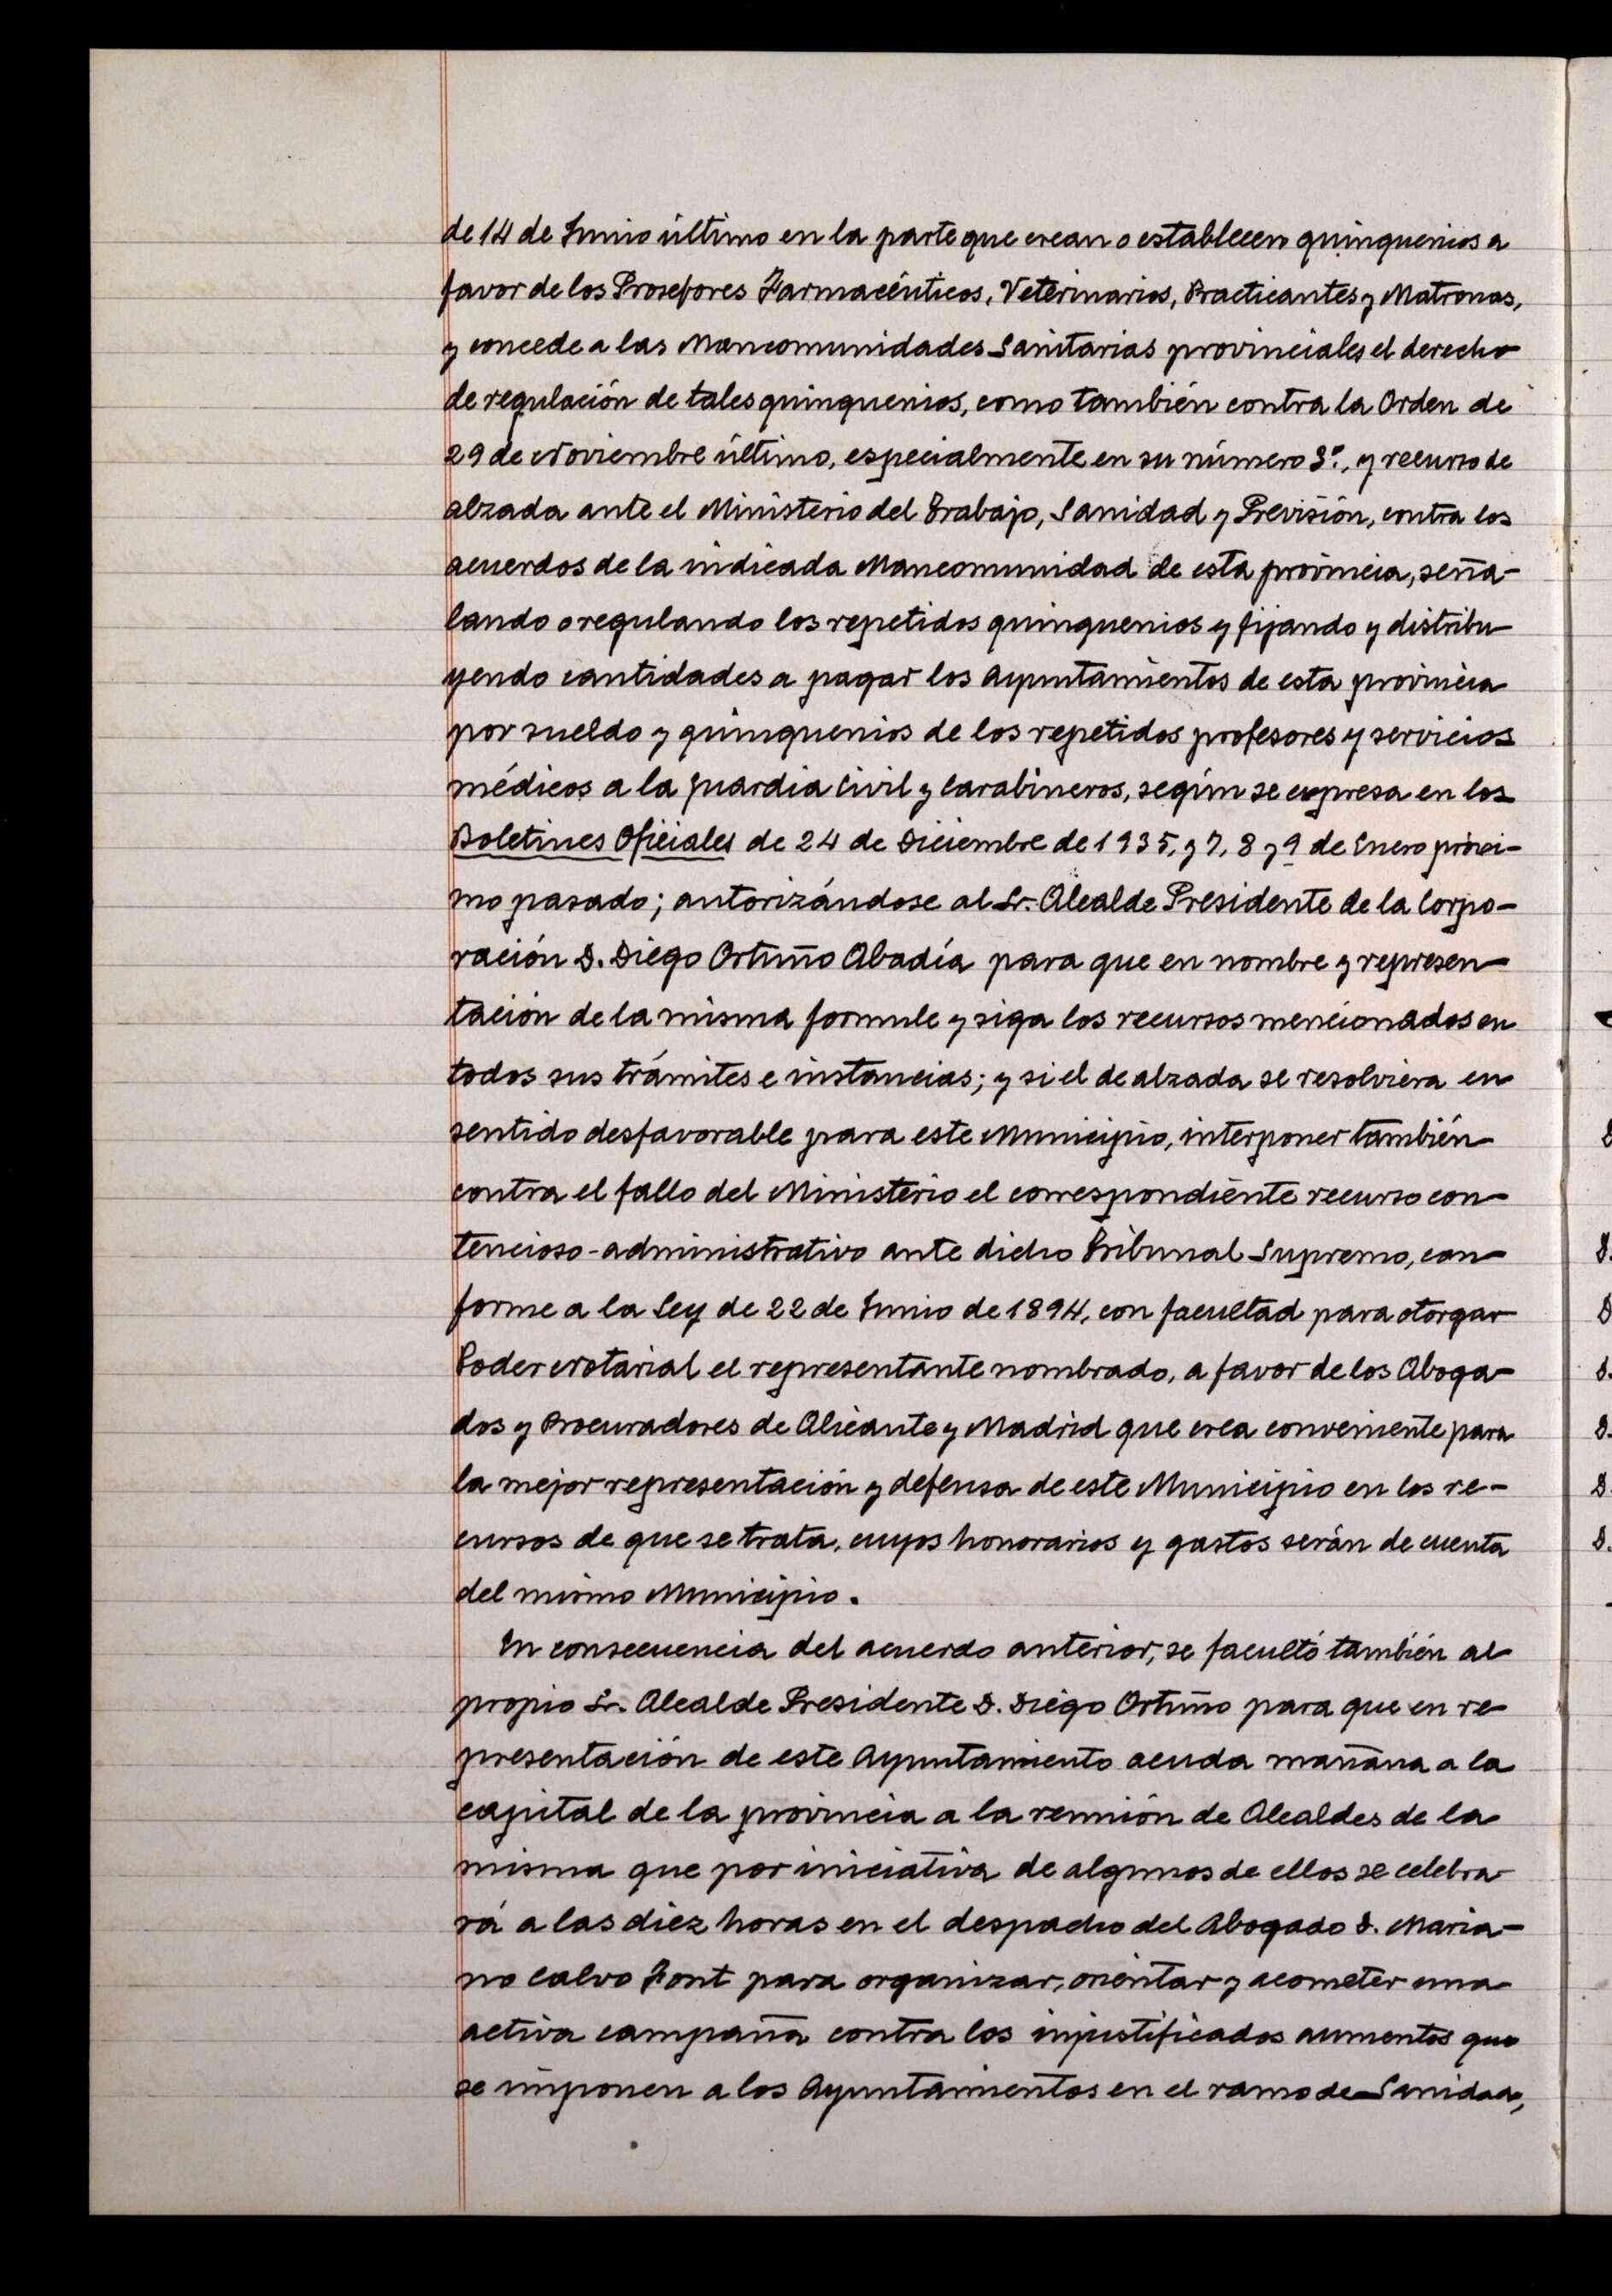 de 14 de Junio último en la parte que crean o establecen quinquenios a
favor de los Prosefores Farmacéuticos, Veterinarios, Practicantes y Matronas,
y concede a las Mancomunidades Sanitarias provinciales el derecho
de regulación de tales quinquenios, como también contra la Orden de
29 de Noviembre último, especialmente en su número 3º., y recurso de
alzada ante el Ministerio del Trabajo, Sanidad y Previsión, contra los
acuerdos de la indicada Mancomunidad de esta provincia, seña-
lando o regulando los repetidos quinquenios y fijando y distribu-
yendo cantidades a pagar los Ayuntamientos de esta provincia
por sueldo y quinquenios de los repetidos profesores y servicios
médicos a la Guardia Civil y Carabineros, según se expresa en los
Boletines Oficiales de 24 de Diciembre de 1935, y 7, 8 y 9 de Enero próxi-
mo pasado; autorizándose al Sr. Alcalde Presidente de la Corpo-
ración D. Diego Ortuño Abadía para que en nombre y represen-
tación de la misma formule y siga los recursos mencionados en
todos sus trámites e instancias; y si el de alzada se resolviera en
sentido desfavorable para este Municipio, interponer también
contra el fallo del Ministerio el correspondiente recurso con-
tencioso-administrativo ante dicho Tribunal Supremo, con-
forme a la Ley de 22 de Junio de 1894, con facultad para otorgar
Poder Notarial el representante nombrado, a favor de los Aboga-
dos y Procuradores de Alicante y Madrid que crea conveniente para
la mejor representación y defensa de este Municipio en los re-
cursos de que se trata, cuyos honorarios y gastos serán de cuenta
del mismo Municipio.
En consecuencia del acuerdo anterior, se facultó también al
propio Sr. Alcalde Presidente D. Diego Ortuño para que en re-
presentación de este Ayuntamiento acuda mañana a la
capital de la provincia a la reunión de Alcaldes de la
misma que por iniciativa de algunos de ellos se celebra-
rá a las diez horas en el despacho del Abogado D. Maria-
no Calvo Font para organizar, orientar y acometer una
activa campaña contra los injustificados aumentos que
se imponen a los Ayuntamientos en el ramo de Sanidad,